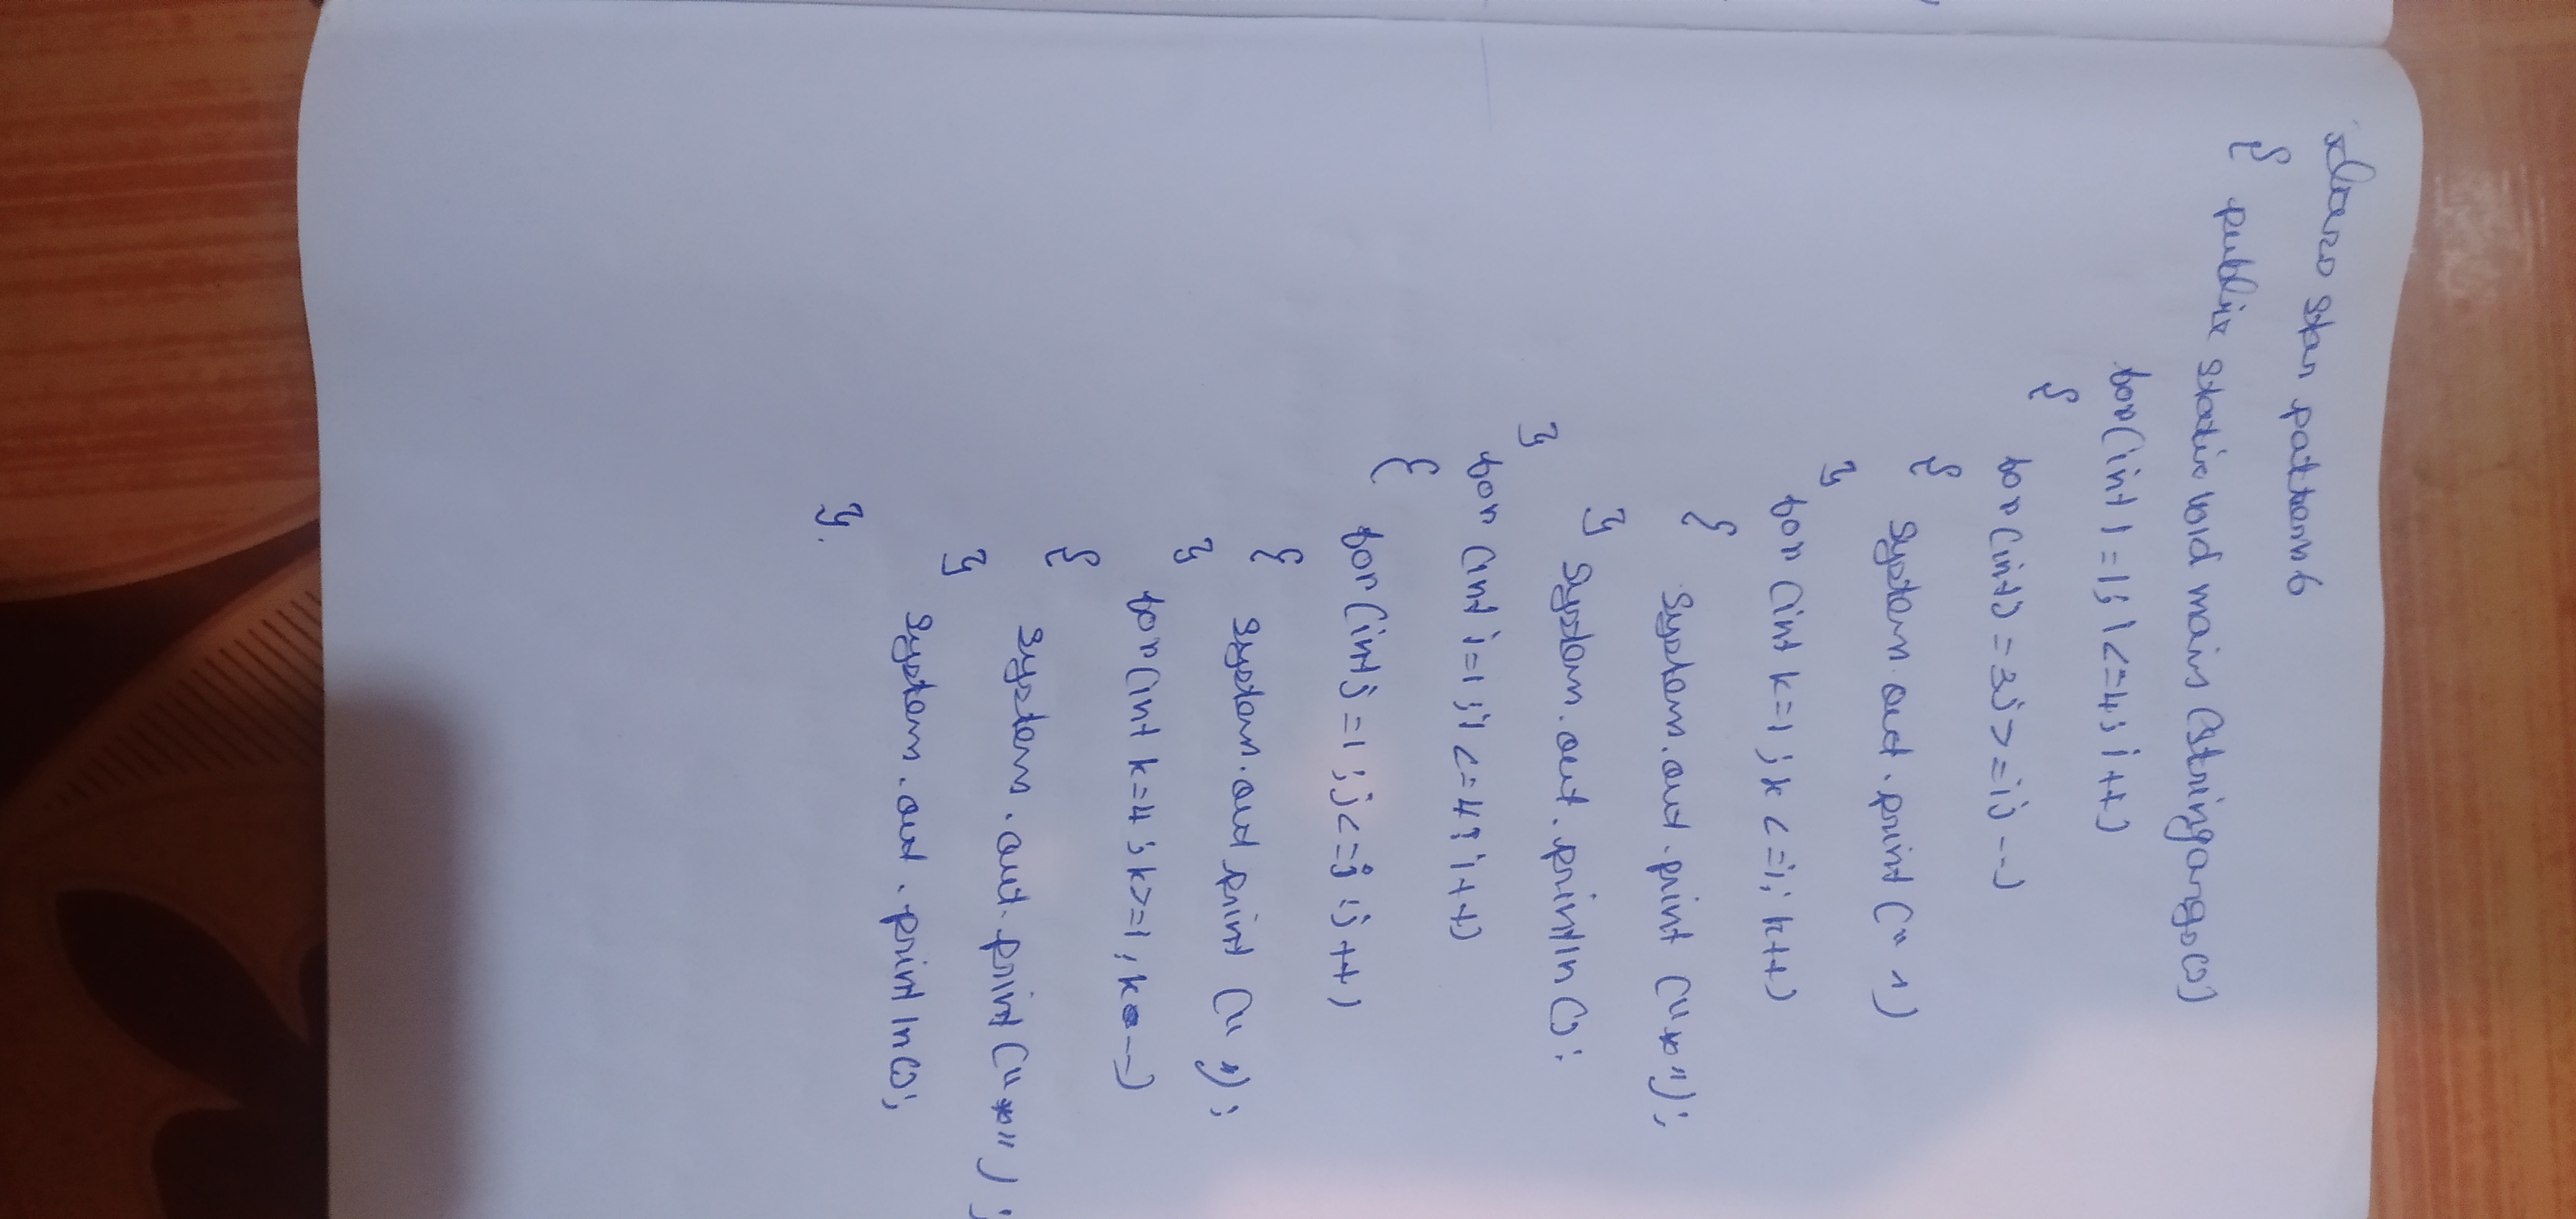 class star pattern6
{ public static void main (String args())
for(int i = 1; i <= 4; i++)
{
for(int j = 3; j >= i; j --)
{ System out . print (" ")
}
for (int k = 1 ; k <= i; k++)
{ System.out .print ("*");
} System.out . println ();
}
for (int i = 1 ; i <= 4; i++)
{
for(int j = 1 ; j <= j ; j ++)
{ System.out print (" ");
}
for(int k = 4 ; k >= 1 ; k --)
{ System . out . print ("*") ;
} System . out . println ();
}.